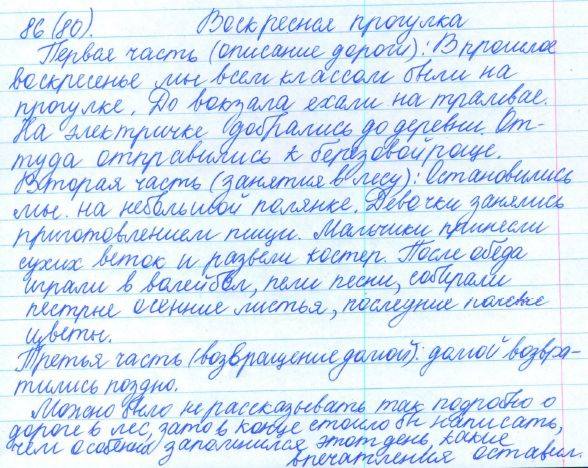 86 (80). Воскресная прогулка
Первая часть (описание дороги): В прошлое
воскресенье мы всем классом были на
прогулке. До вокзала ехали на трамвае.
На электричке добрались до деревни. От-
туда отправились к берёзовой роще.
Вторая часть (занятия в лесу): Остановились
мы на небольшой полянке. Девочки занялись
приготовлением пищи. Мальчики принесли
сухих веток и развели костер. После обеда
играли в волейбол, пели песни, собирали
пестрые осенние листья, последние полевые
цветы.
Третья часть (возвращение домой): домой возвра-
тились поздно.
Можно было не рассказывать так подробно о
дороге в лес, зато в конце стоило бы написать,
чем особенно запомнился этот день, какие
впечатления оставил.